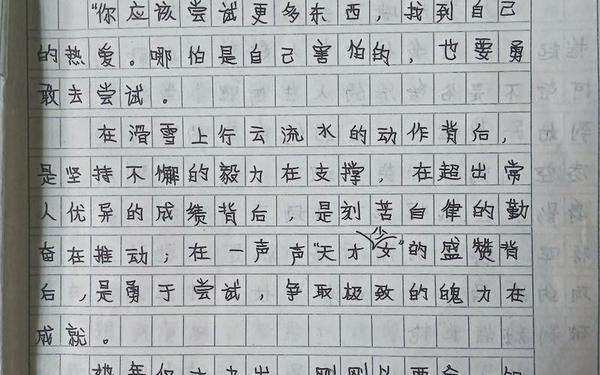 “你应该尝试更多东西，找到自己
的热爱。哪怕是自己害怕的，也要勇
敢去尝试。
在滑雪上行云流水的动作背后，
是坚持不懈的毅力在支撑，在超出常
人优异的成绩背后，是刻苦自律的勤
奋在推动；在一声声“天才少女”的盛赞背
后，是勇于尝试，争取极致的魄力在
成就。